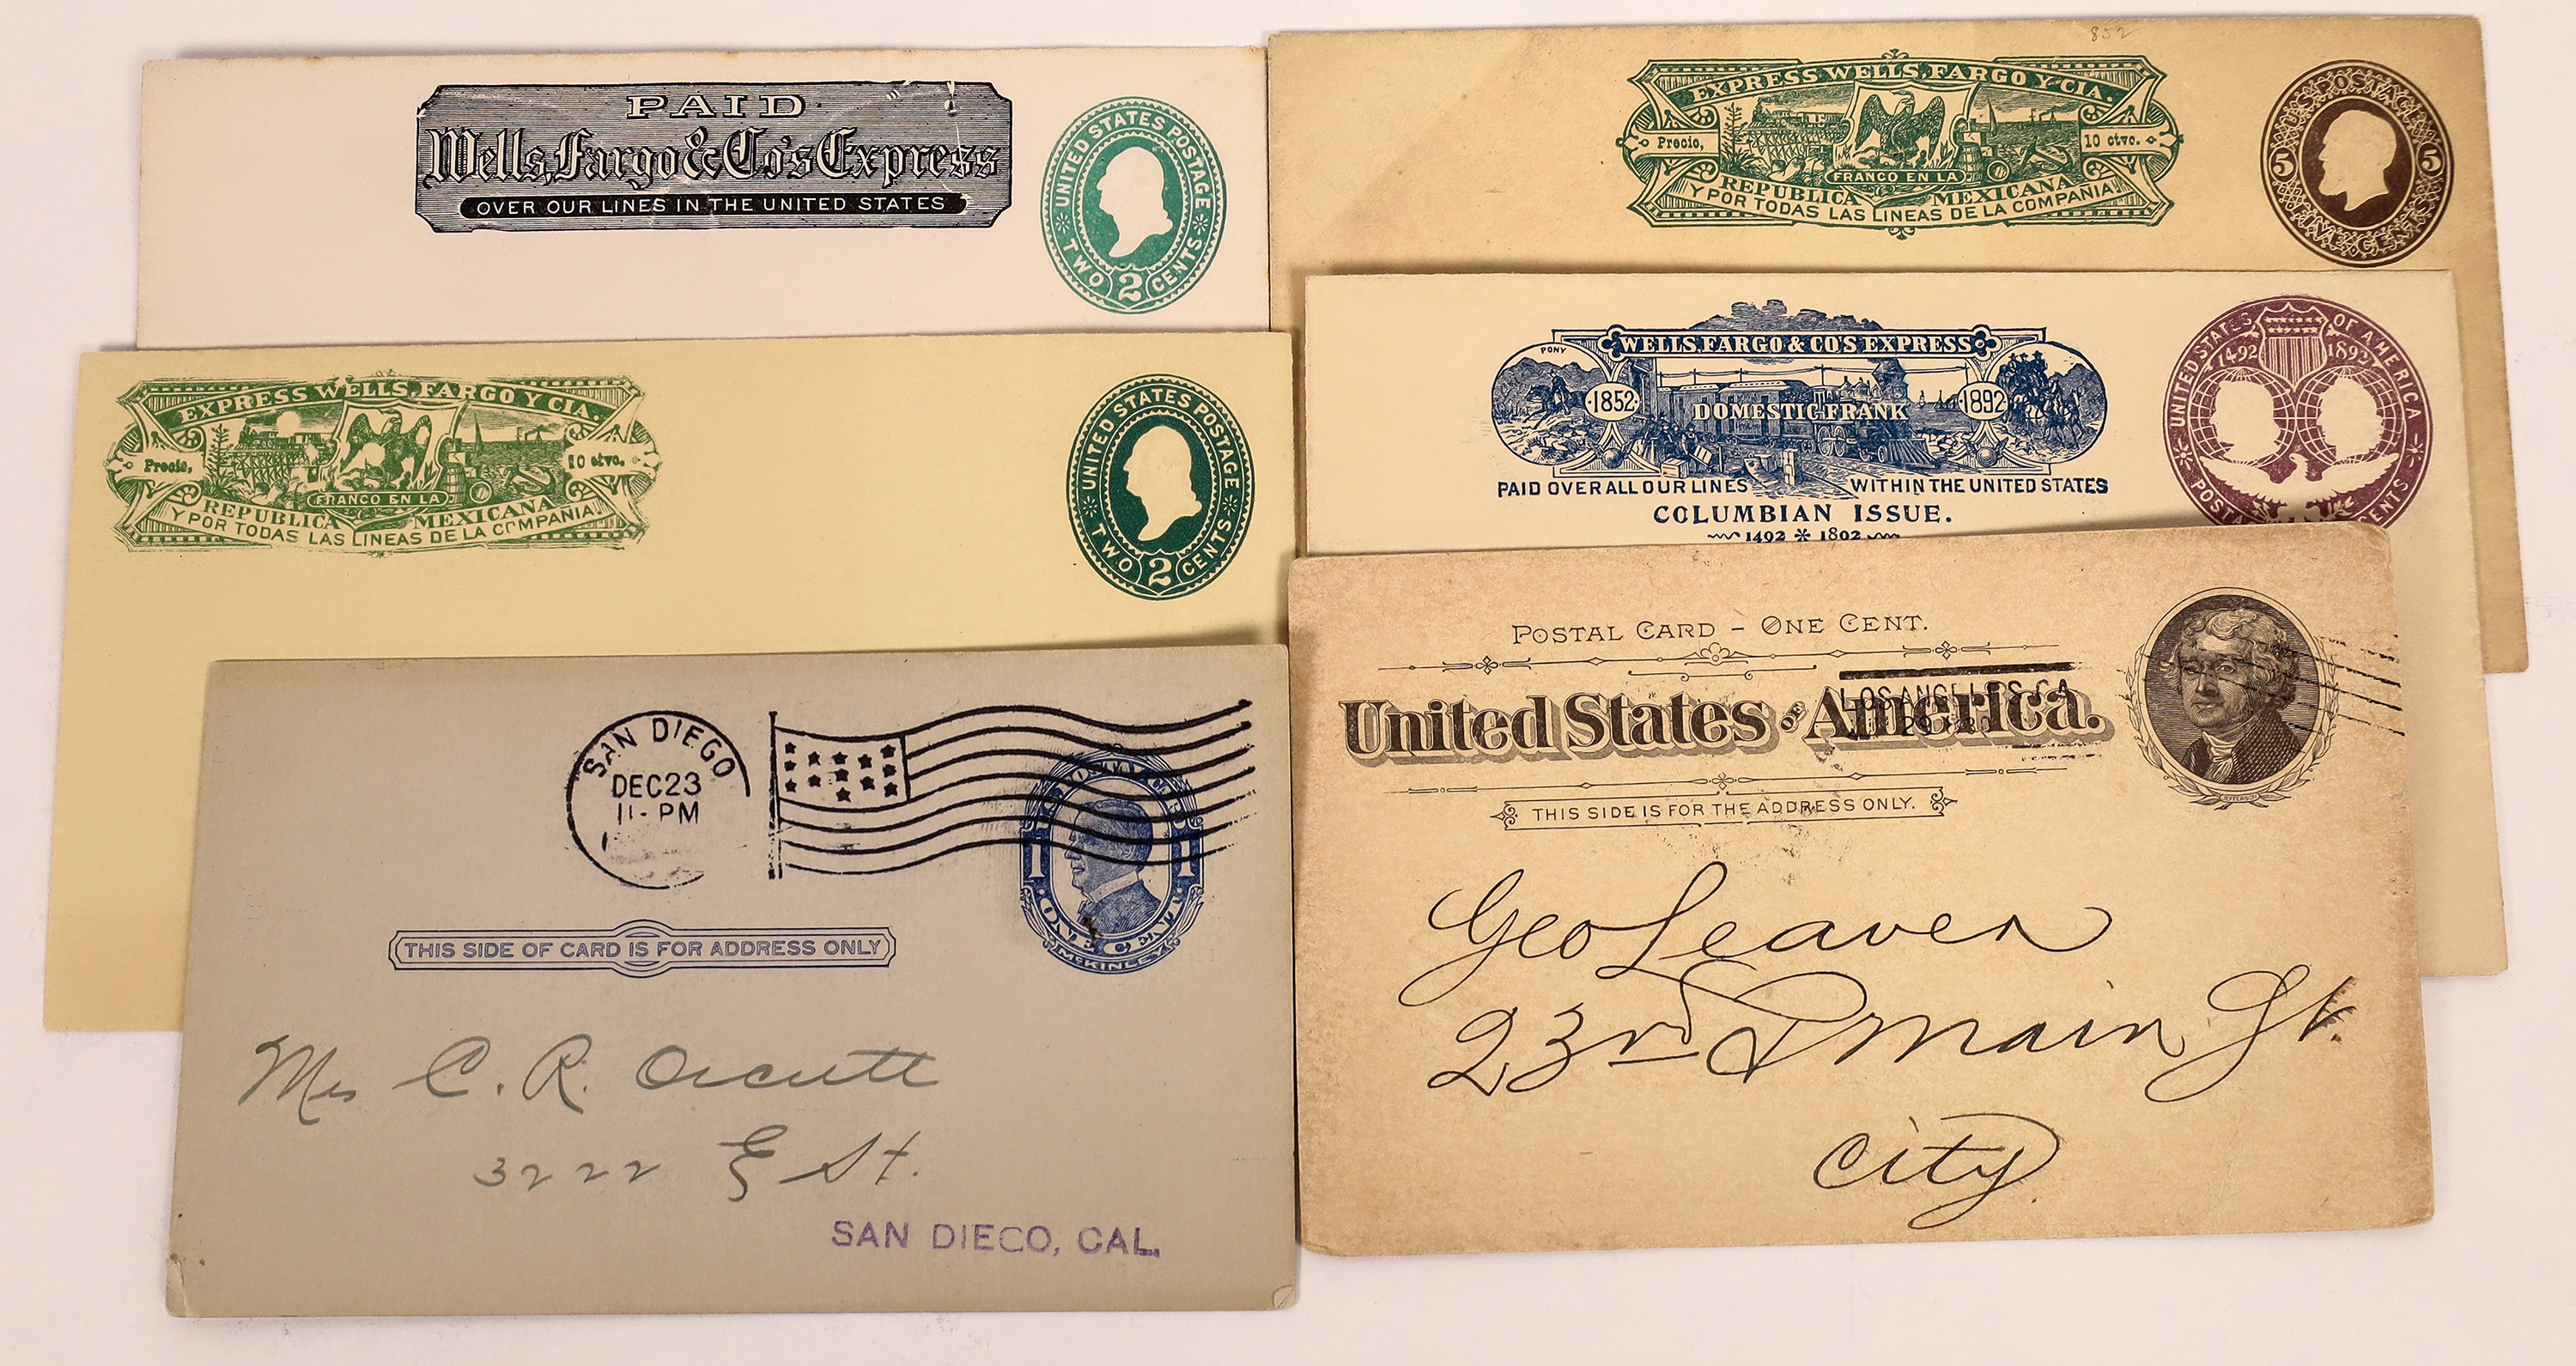 PAID
Wells, Fargo & Co's Express
OVER OUR LINES IN THE UNITED STATES
UNITED STATES POSTAGE
TWO 2 CENTS
852
EXPRESS WELLS, FARGO Y CIA.
Precio, 10 ctvo.
FRANCO EN LA
REPUBLICA MEXICANA
Y POR TODAS LAS LINEAS DE LA COMPANIA.
U.S. POSTAGE
5 5
FIVE CENTS
EXPRESS WELLS, FARGO Y CIA.
Precio, 10 ctvo.
FRANCO EN LA
REPUBLICA MEXICANA
Y POR TODAS LAS LINEAS DE LA COMPANIA.
UNITED STATES POSTAGE
TWO 2 CENTS
PONY
WELLS, FARGO & CO'S EXPRESS
1852 DOMESTIC FRANK 1892
PAID OVER ALL OUR LINES WITHIN THE UNITED STATES
COLUMBIAN ISSUE.
1492 * 1892
UNITED STATES OF AMERICA
1492 1892
POSTA CENTS
SAN DIEGO
DEC 23
11- PM
1 1
ONE CENT
McKINLEY
THIS SIDE OF CARD IS FOR ADDRESS ONLY
Mrs C. R. Orcutt
3222 E St.
SAN DIEGO, CAL.
POSTAL CARD - ONE CENT.
United States of America.
LOS ANGELES, CA
JEFFERSON
THIS SIDE IS FOR THE ADDRESS ONLY.
Geo Leaver
23rd & Main St.
City